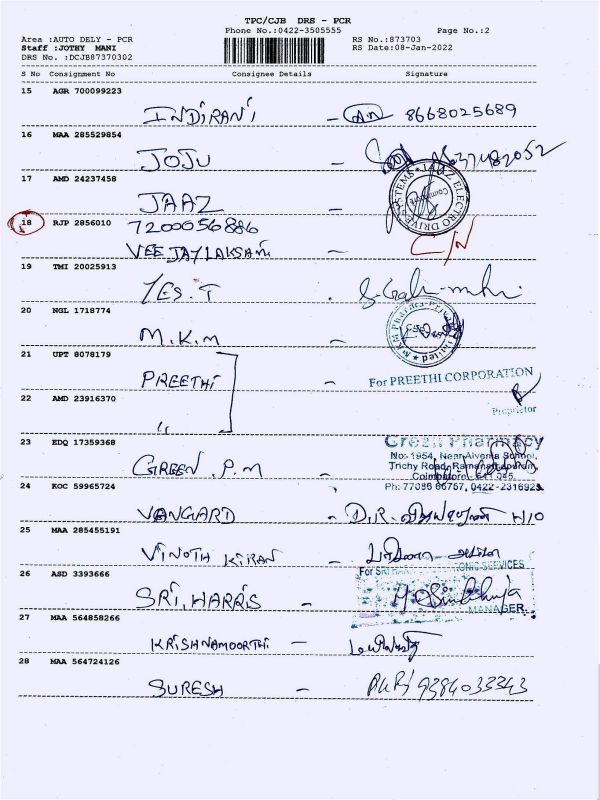 TPC/CJB DRS - PCR
Phone No.:0422-3505555 Page No.:2
Area :AUTO DELY - PCR RS No.:873703
Staff :JOTHY MANI RS Date:08-Jan-2022
DRS No. :DCJB87370302
S No Consignment No Consignee Details Signature
15 AGR 700099223
INDIRANI - 8668025689
16 MAA 285529854
JOJU -
17 AMD 24237458
JAAZ JAAZ ELECTRO DRIVE SYSTEMS
18 RJP 2856010 7200056886
VEEJAYLAKSAMI - C/N
19 TMI 20025913
YES.T
20 NGL 1718774
M.K.M - Limited
21 UPT 8078179
PREETHI - For PREETHI CORPORATION
22 AMD 23916370 Proprietor
"
23 EDQ 17359368 Green Pharmacy
GREEN P.M No: 1954, Near Alvernia School,
Trichy Road, Ramanathapuram,
Coimbatore - 641 045.
Ph: 77086 66767, 0422-2316925
24 KOC 59965724
VANGARD - D.R. H/O
25 MAA 285455191
VINOTH KIRAN -
26 ASD 3393666 For SRI SERVICES
SRI. HARRIS - MANAGER
27 MAA 564858266
KRISHNAMOORTHI -
28 MAA 564724126
SURESH - 9384033343